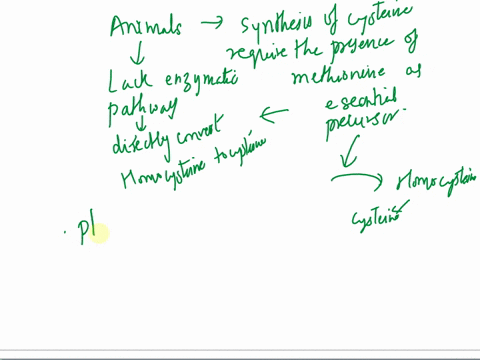 Animals → synthesis of cysteine
require the presence of
Lack enzymatic methionine as
pathway esential
precursor.
directly convert ←
Homocysteine to cysteine
→ Homocysteine
cysteine
. pl